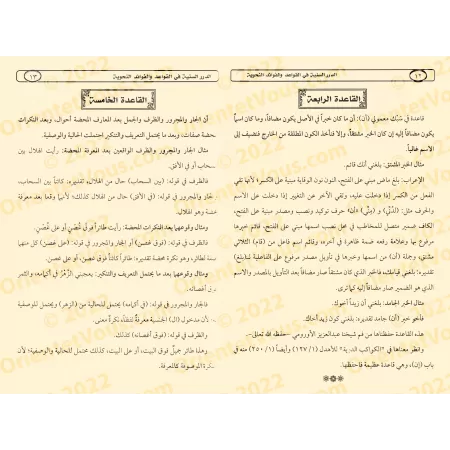 ١٢
الدرر السنية في القواعد والفوائد النحوية
القاعدة الرابعة
قاعدة في سَبْك معمولَي (أن): أن ما كان خبراً في الأصل يكون مضافاً، وما كان اسماً
يكون مضافاً إليه إن كان الخبر مشتقاً، وإلا فتأخذ الكون المطلقة من الخارج فتضيف إلى
الاسم غالباً.
مثال الخبر المشتق: بلغني أنك قائم.
الإعراب: بلغ ماض مبني على الفتح، النون نون الوقاية مبنية على الكسر؛ لأنها تقي
الفعل من الكسر إذا دخلت عليه، وتقي الآخر عن التغيير إذا دخلت على الاسم
والحرف مثل: (لدنّي) و (منّي) (أن) حرف توكيد ونصب ومصدر مبنية على الفتح،
الكاف ضمير متصل للمخاطب في محل نصب اسمها مبني على الفتح، قائم خبرها
مرفوع بها وعلامة رفعه ضمة ظاهرة في آخره، وقائم اسم فاعل من (قام) الثلاثي
مشتق، وجملة (أن) من اسمها وخبرها في تأويل مصدر مرفوع على الفاعلية لـ(بلغ)
تقديره: بلغني قيامك، فالخبر الذي كان مشتقاً صار مضافاً بعد التأويل بالمصدر والاسم
الذي هو الضمير صار مضافاً إليه كما ترى.
مثال الخبر الجامد: بلغني أن زيداً أخوك.
فأخو خبر (أن) جامد تقديره: بلغني كون زيد أخاك.
هذه القاعدة حفظناها من فم شيخنا عبدالعزيز الأورومي -حفظه الله تعالى-.
وانظر معناها في "الكواكب الدرية" للأهدل (١/ ١٢٧) وأيضاً (١/ ٢٥٠) منه في
باب (أن)، وهي قاعدة عظيمة فاحفظها.
الدرر السنية في القواعد والفوائد النحوية
١٣
القاعدة الخامسة
أن الجار والمجرور والظرف والجمل بعد المعارف المحضة أحوال، وبعد النكرات
حضة صفات، وبعد ما يحتمل التعريف والتنكير احتملت الحالية والوصفية.
مثال الجار والمجرور والظرف الواقعين بعد المعرفة المحضة: رأيت الهلال بين
سحاب أو في الأفق.
فالظرف في قوله: (بين السحاب) حال من الهلال، تقديره: كائناً بين السحاب،
جار والمجرور في قوله: (في الأفق) حال من الهلال كذلك؛ لأنهما وقعا بعد معرفة
حضة وهو الهلال.
ومثال وقوعهما بعد النكرات المحضة: رأيت طائراً فوق غُصْنٍ أو على غُصْنٍ.
فالظرف في قوله: (فوق غصن) أو الجار والمجرور في قوله: (على غصن) كل منهما
سنة لطائر، وهو نكرة محضة تقديره: طائراً كائناً فوق غصن، أو على غصن.
ومثال وقوعهما بعد ما يحتمل التعريف والتنكير: يعجبني الزَّهْرُ في أكمامه، والثمر
ق أغصانه.
فالجار والمجرور في قوله: (في أكمامه) محتمل للحالية من (الزهر) ويحتمل للوصفية
لأن مدخول (ال) الجنسية معرفةٌ لفظاً نكرةٌ معنى.
والظرف في قوله: (فوق أغصانه) كذلك.
وهذا طائر جميلٌ فوق البيت، أو على البيت، كذلك محتمل للحالية والوصفية؛ لأن
كرة الموصوفة كالمعرفة.